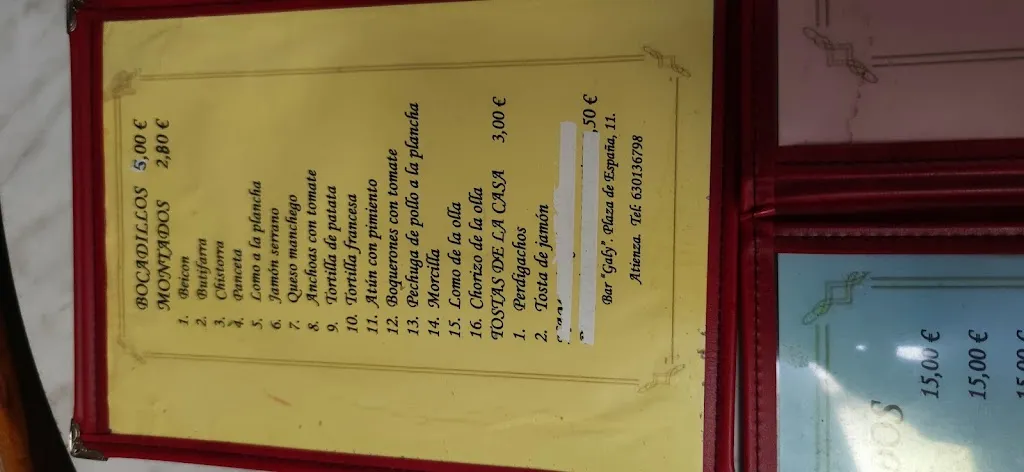 BOCADILLOS 5,00 €
MONTADOS 2,80 €
1. Beicon
2. Butifarra
3. Chistorra
4. Panceta
5. Lomo a la plancha
6. Jamón serrano
7. Queso manchego
8. Anchoas con tomate
9. Tortilla de patata
10. Tortilla francesa
11. Atún con pimiento
12. Boquerones con tomate
13. Pechuga de pollo a la plancha
14. Morcilla
15. Lomo de la olla
16. Chorizo de la olla
TOSTAS DE LA CASA 3,00 €
1. Perdigachos
2. Tosta de jamón
,50 €
Bar "Galy". Plaza de España, 11.
Atienza. Tel: 630136798
15,00 €
15,00 €